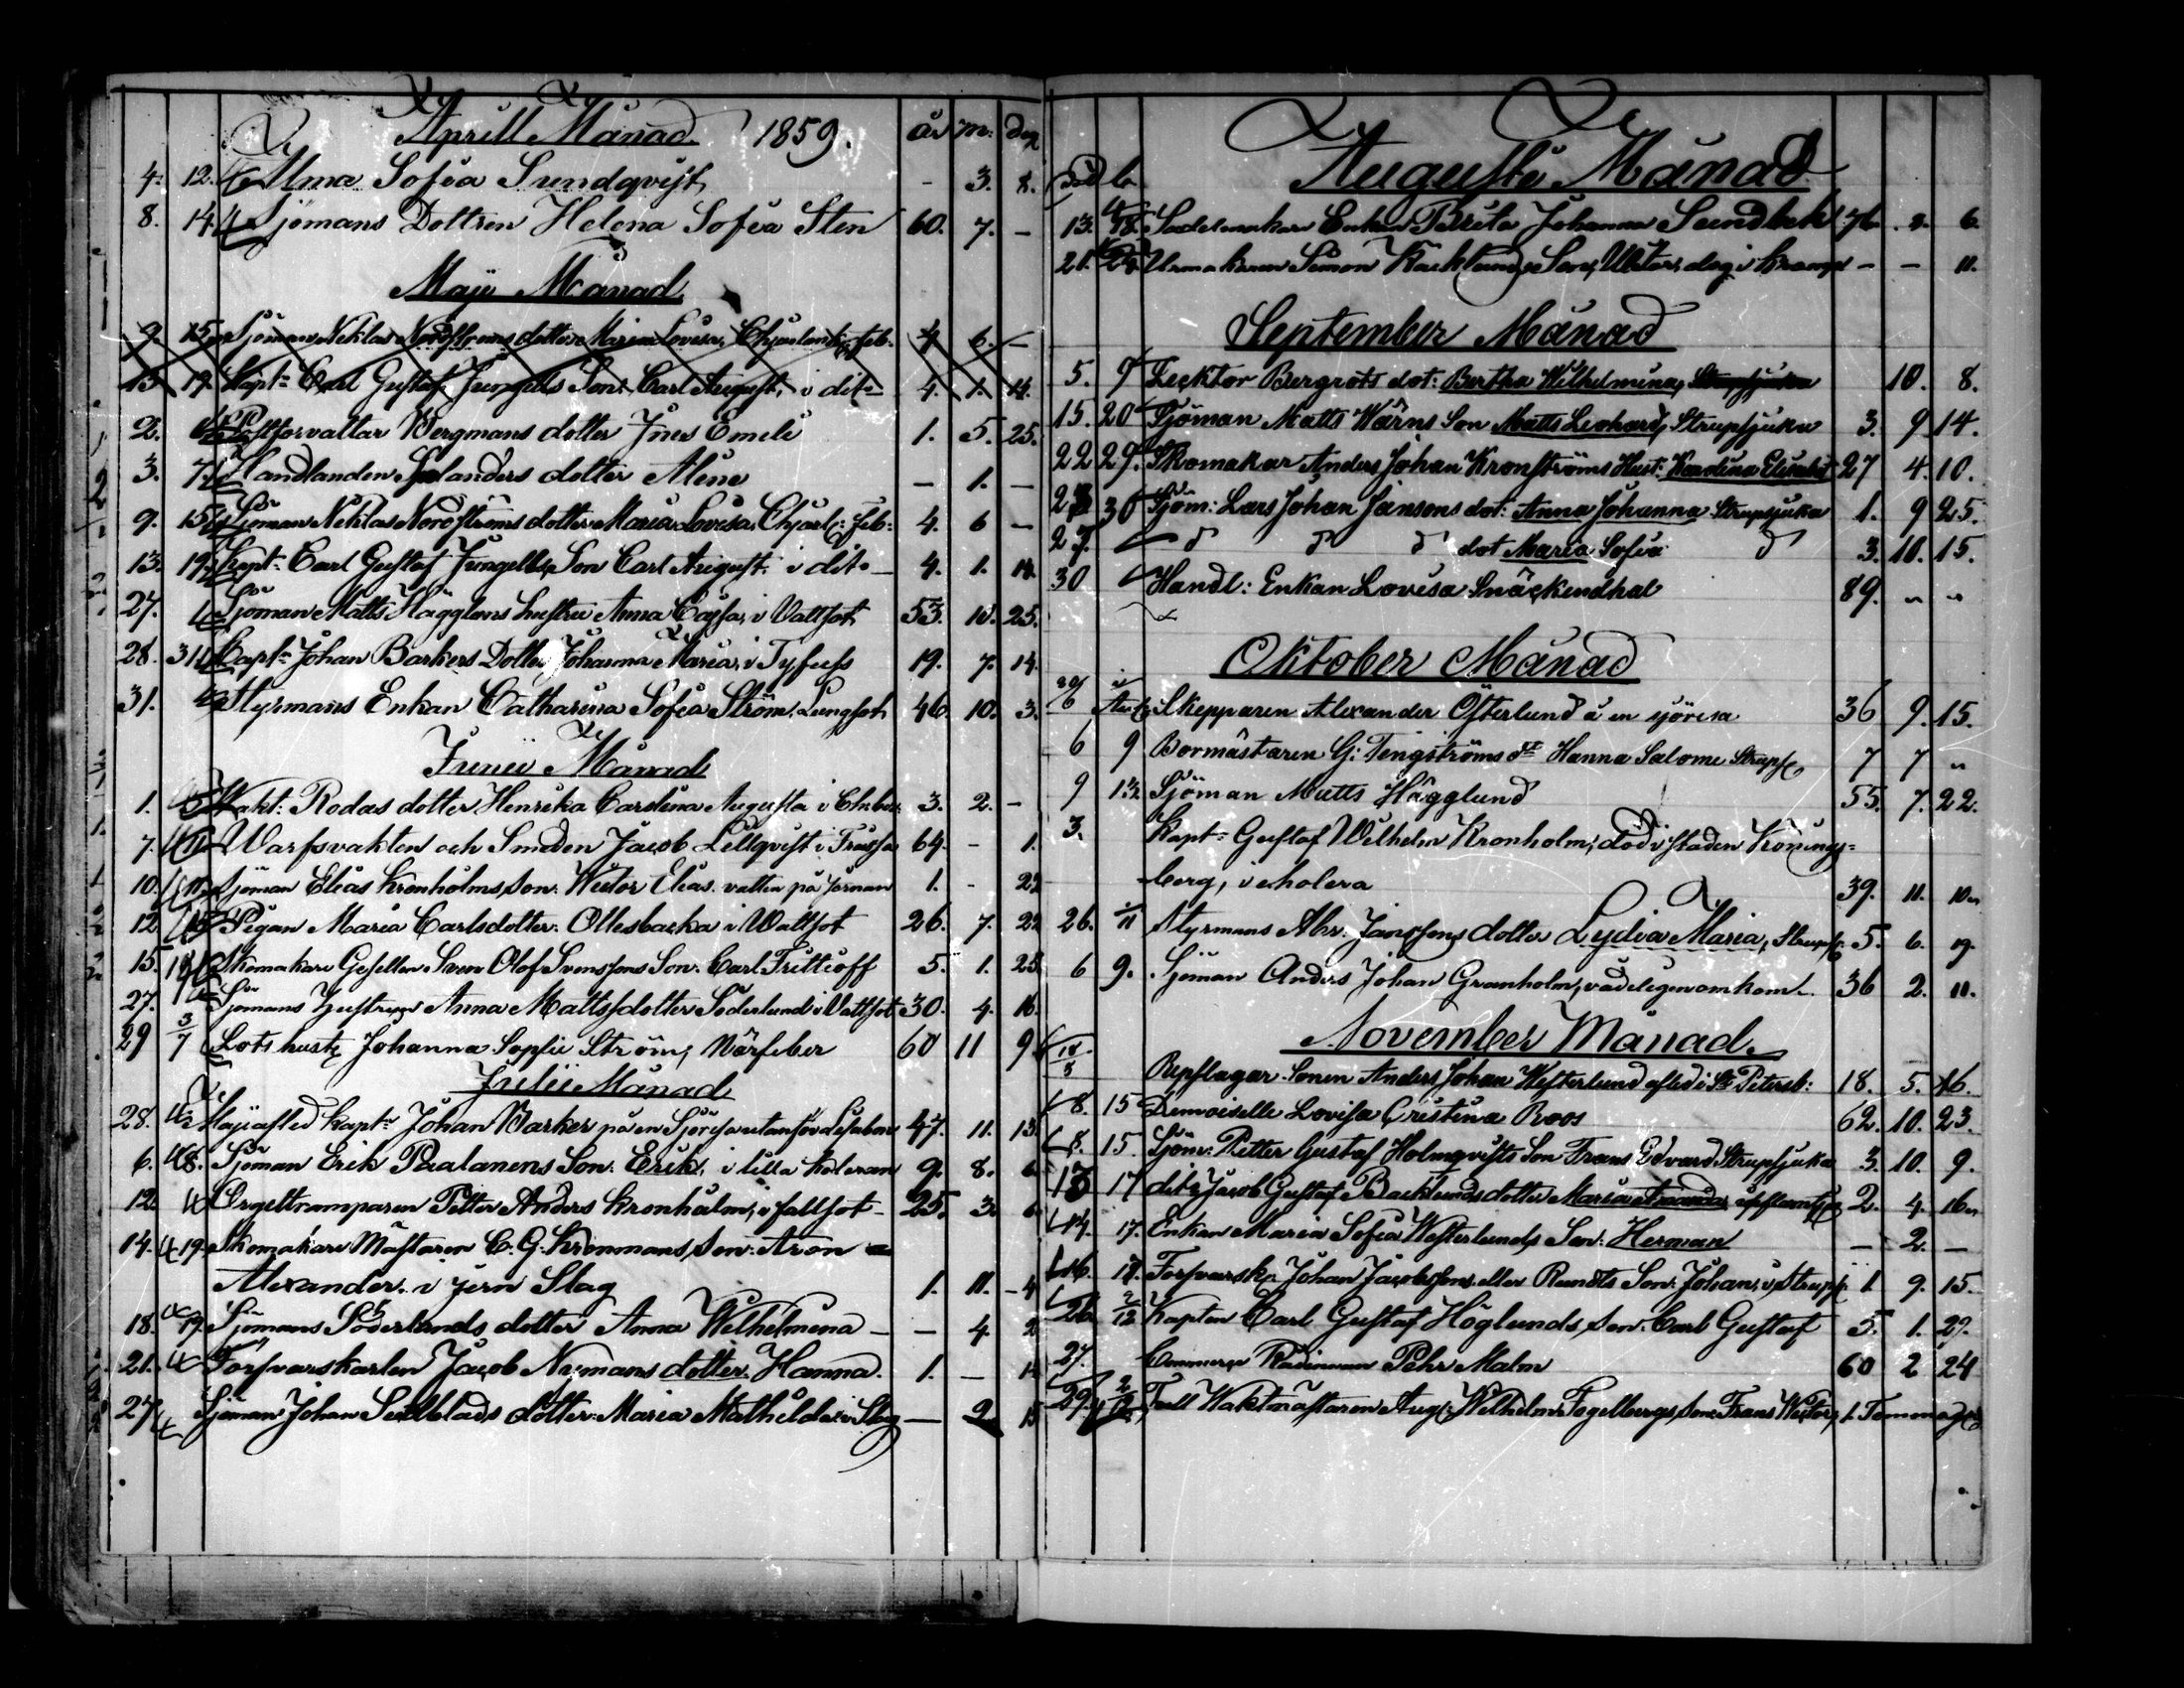 Aprill Månad 1859. år m: dag
4. 12. Alma Sofia Sundqvist - 3. 8.
8. 14. Sjömans Dottren Helena Sofia Sten 60. 7. -
Maji Månad
9. 15. Sjöman Niklas Nordströms dotter Maria Lovisa, feb. 4 6. -
13 19. Kapt= Carl Gustaf Jungells Son: Carl August, i dito 4. 1. 14.
2. Postforvaltar Bergmans dotter Ines Emeli 1. 5. 25.
3. 7. Handlanden dotter Aline - 1. -
9. 15. Sjöman Niklas Nordströms dotter Maria Lovisa, feb: 4. 6 -
13. 19. Kapt= Carl Gustaf Jungells Son Carl August. i dito 4. 1. 14.
27. Sjöman Matts Hägglunds hustru Anna Cajsa, i Vattsot 53. 10. 25.
28. 31 Capt= Johan Barkers Dotter Johanna Maria, i Tyfuss 19. 7. 14.
31. Styrmans Enkan Catharina Sofia Ström. Lungsot 46. 10. 3.
Junii Månad
1. Rodas dotter Henrika Carolina Augusta i 3. 2. -
7. 11 Warfsvakten och Smeden Jacob Lillqvist i 64. - 1.
10. Sjöman Elias Kronholms, son. Victor Elias. 1. - 22
12 Pigan Maria Carlsdotter. Ollesbacka i Wattsot 26. 7. 22
15. 19 Skomakare Gesellen Sven Olof Svenssons Son. Carl Frittioff 5. 1. 25
27. Sjömans Hustrun Anna Mattsdotter Söderlund i Vattsot 30. 4. 16.
29 3/7 Lots hust Johanna Sophie Ström, Närfeber 60 11 9
Julii Månad
28. Kapt= Johan Barker på en Sjöresa utanför Lisabon 47. 11. 13
6. 8. Sjöman Erik Paalanens Son. Erik, i lilla koleran 9. 8. 6
12. Orgeltramparen Petter Anders Kronholm, i fallsot - 25. 3. 6
14. 19. Skomakare Mästaren C. G. Kronmans, son. Aron
Alexander. i Jern Slag 1. 11. - 4
18. 19. Sjömans Söderlunds dotter Anna Wilhelmina - - 4. 2
21. Forsvarskarlen Jacob Nymans dotter. Hanna. 1. -
27 Sjöman Johan dotter. Maria Mathilda i Slag - 2 15
Augusti Månad
död b.
13. 18. Sadelmakar Enkan Brita Johanna Sundbek 76. 2. 6.
21. Urmakaren Simon Backlunds Son, Viktor, dog i Kramp - - 11.
September Månad
5. 9 Lecktor Bergrots dot: Bertha Wilhelmina, Strupsjuka 10. 8.
15. 20 Sjöman Matts Wärns Son Matts Leonard, Strupsjuka 3. 9 14.
22 29. Skomakar Anders Johan Kronströms Hust: Karolina Elisabet 27 4. 10.
30 Sjöm: Lars Johan Jansons dot: Anna Johanna Strupsjuka 1. 9 25.
27. d d d dot Maria Sofia d 3. 10. 15.
30 Handl: Enkan Lovisa Snäckendhal 89. " "
Oktober Månad
Skepparen Alexander Österlund å en sjöresa 36 9. 15.
6 9 Bormästaren G: Tengströms dt Hanna Salome Strups 7 7 "
9 13. Sjöman Matts Hägglund 55. 7. 22.
3. Kapt= Gustaf Wilhelm Kronholm, död i staden Könings=
berg, i cholera 39. 11. 10.
26. Styrmans Abr. Janssons dotter Lydia Maria, Strups. 5. 6. 19.
6 9. Sjöman Anders Johan Granholm, vådeligen omkom 36 2. 11.
November Månad
Repslagar Sonen Anders Johan Westerlund afled i St Petersb: 18. 5. 16.
8. 15 Demoiselle Lovisa Cristina Roos 62. 10. 23.
8. 15. Sjöm: Petter Gustaf Holmqvists Son Frans Edvard Strupsjuka 3. 10. 9.
13 17 dito Jacob Gustaf Backlunds dotter Maria Amanda 2. 4. 16.
14. 17. Enkan Maria Sofia Westerlunds Son: Herman - 2. -
16. 17. Forsvarsk. Johan Jacobssons eller Rundts Son. Johan, i Strups 1 9. 15.
26 2/12 Kapten Carl Gustaf Höglunds, son. Carl Gustaf 5. 1. 29.
27. Commerce Rådinnan Pehr Malm 60 2 24
29. Tull Waktmästaren Aug: Wilhelm Fogelbergs, son. Frans Victor,